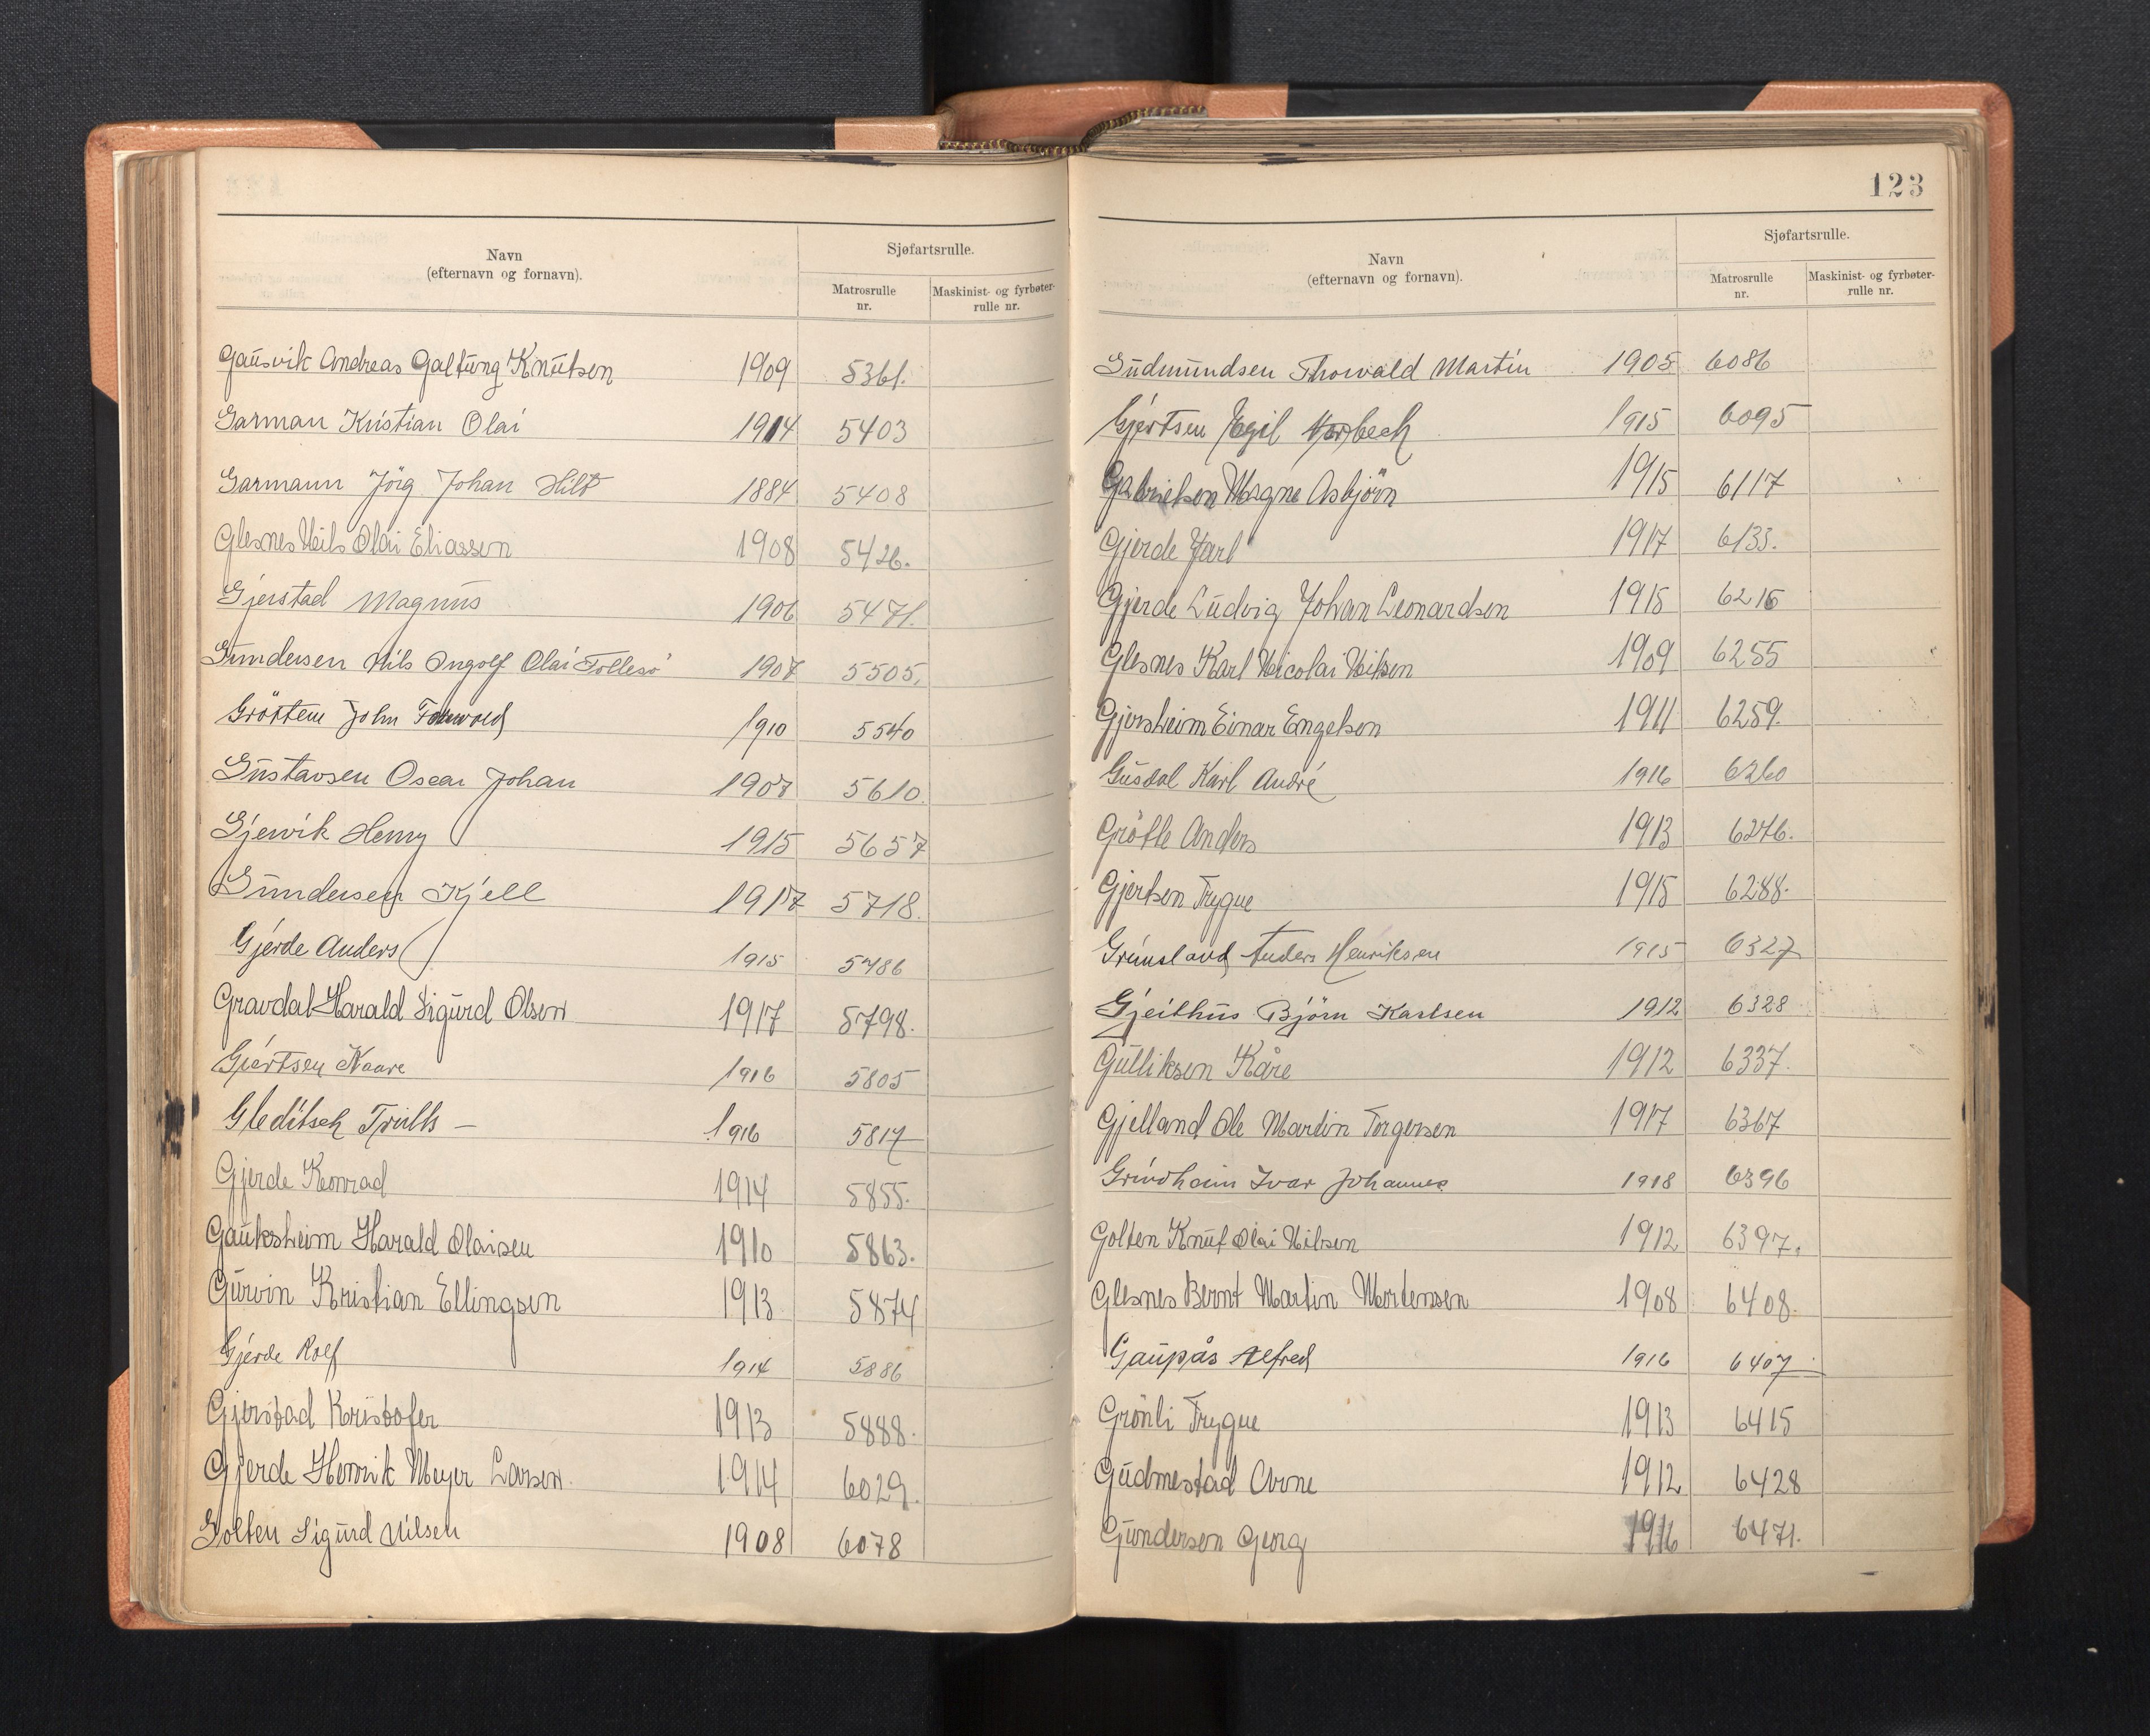 Navn
(efternavn og fornavn).
Sjøfartsrulle.
Matrosrulle
nr.
Maskinist- og fyrbøter-
rulle nr.
Gausvik Andreas Galtung Knutsen 1909 5361.
Garman Kristian Olai 1914 5403
Garmann Jörg Johan Hilt 1884 5408
Glesnes Nils Olai Eliassen 1908 5426.
Gjerstad Magnus 1906 5471.
Gundersen Nils Ingolf Olai Follesö 1907 5505.
Gröttem John 1910 5540
Gustavsen Oscar Johan 1907 5610.
Gjervik Henry 1915 5657
Gundersen Kjell 1917 5718.
Gjerde Anders 1915 5786
Gravdal Harald Sigurd Olsen 1917 5798.
Gjertsen Kaare 1916 5805
Gleditsch Trulls - 1916 5817
Gjerde Konrad 1914 5855.
Gauksheim Harald Olaisen 1910 5863.
Gurvin Kristian Ellingsen 1913 5874
Gjerde Rolf 1914 5886
Gjerstad Kristofer 1913 5888.
Gjerde Henrik Meyer Larsen. 1914 6029.
Golten Sigurd Nilsen 1908 6078
123
Navn
(efternavn og fornavn).
Sjøfartsrulle.
Matrosrulle
nr.
Maskinist- og fyrbøter-
rulle nr.
Gudmundsen Thorvald Martin 1905 6086
Gjertsen Egil 1915 6095
Gabrielsen Magne Asbjörn 1915 6117
Gjerde Jarl 1917 6135.
Gjerde Ludvig Johan Leonardsen 1915 6216
Glesnes Karl Nicolai Nilsen 1909 6255
Gjersheim Einar Engelsen 1911 6259.
Gusdal Karl André 1916 6260
Grötle Anders 1913 6276.
Gjertsen Trygve 1915 6288.
Grimsland Anders Henriksen 1915 6327
Gjeithus Björn Karlsen 1912 6328
Gulliksen Kåre 1912 6337.
Gjelland Ole Martin Torgersen 1917 6367
Grindheim Ivar Johannes 1918 6396
Golten Knut Olai Nilsen 1912 6397.
Glesnes Bernt Martin Mortensen 1908 6408.
Gaupås Alfred 1916 6407
Grönli Trygve 1913 6415
Gudmestad Arne 1912 6428
Gundersen Georg 1916 6471.